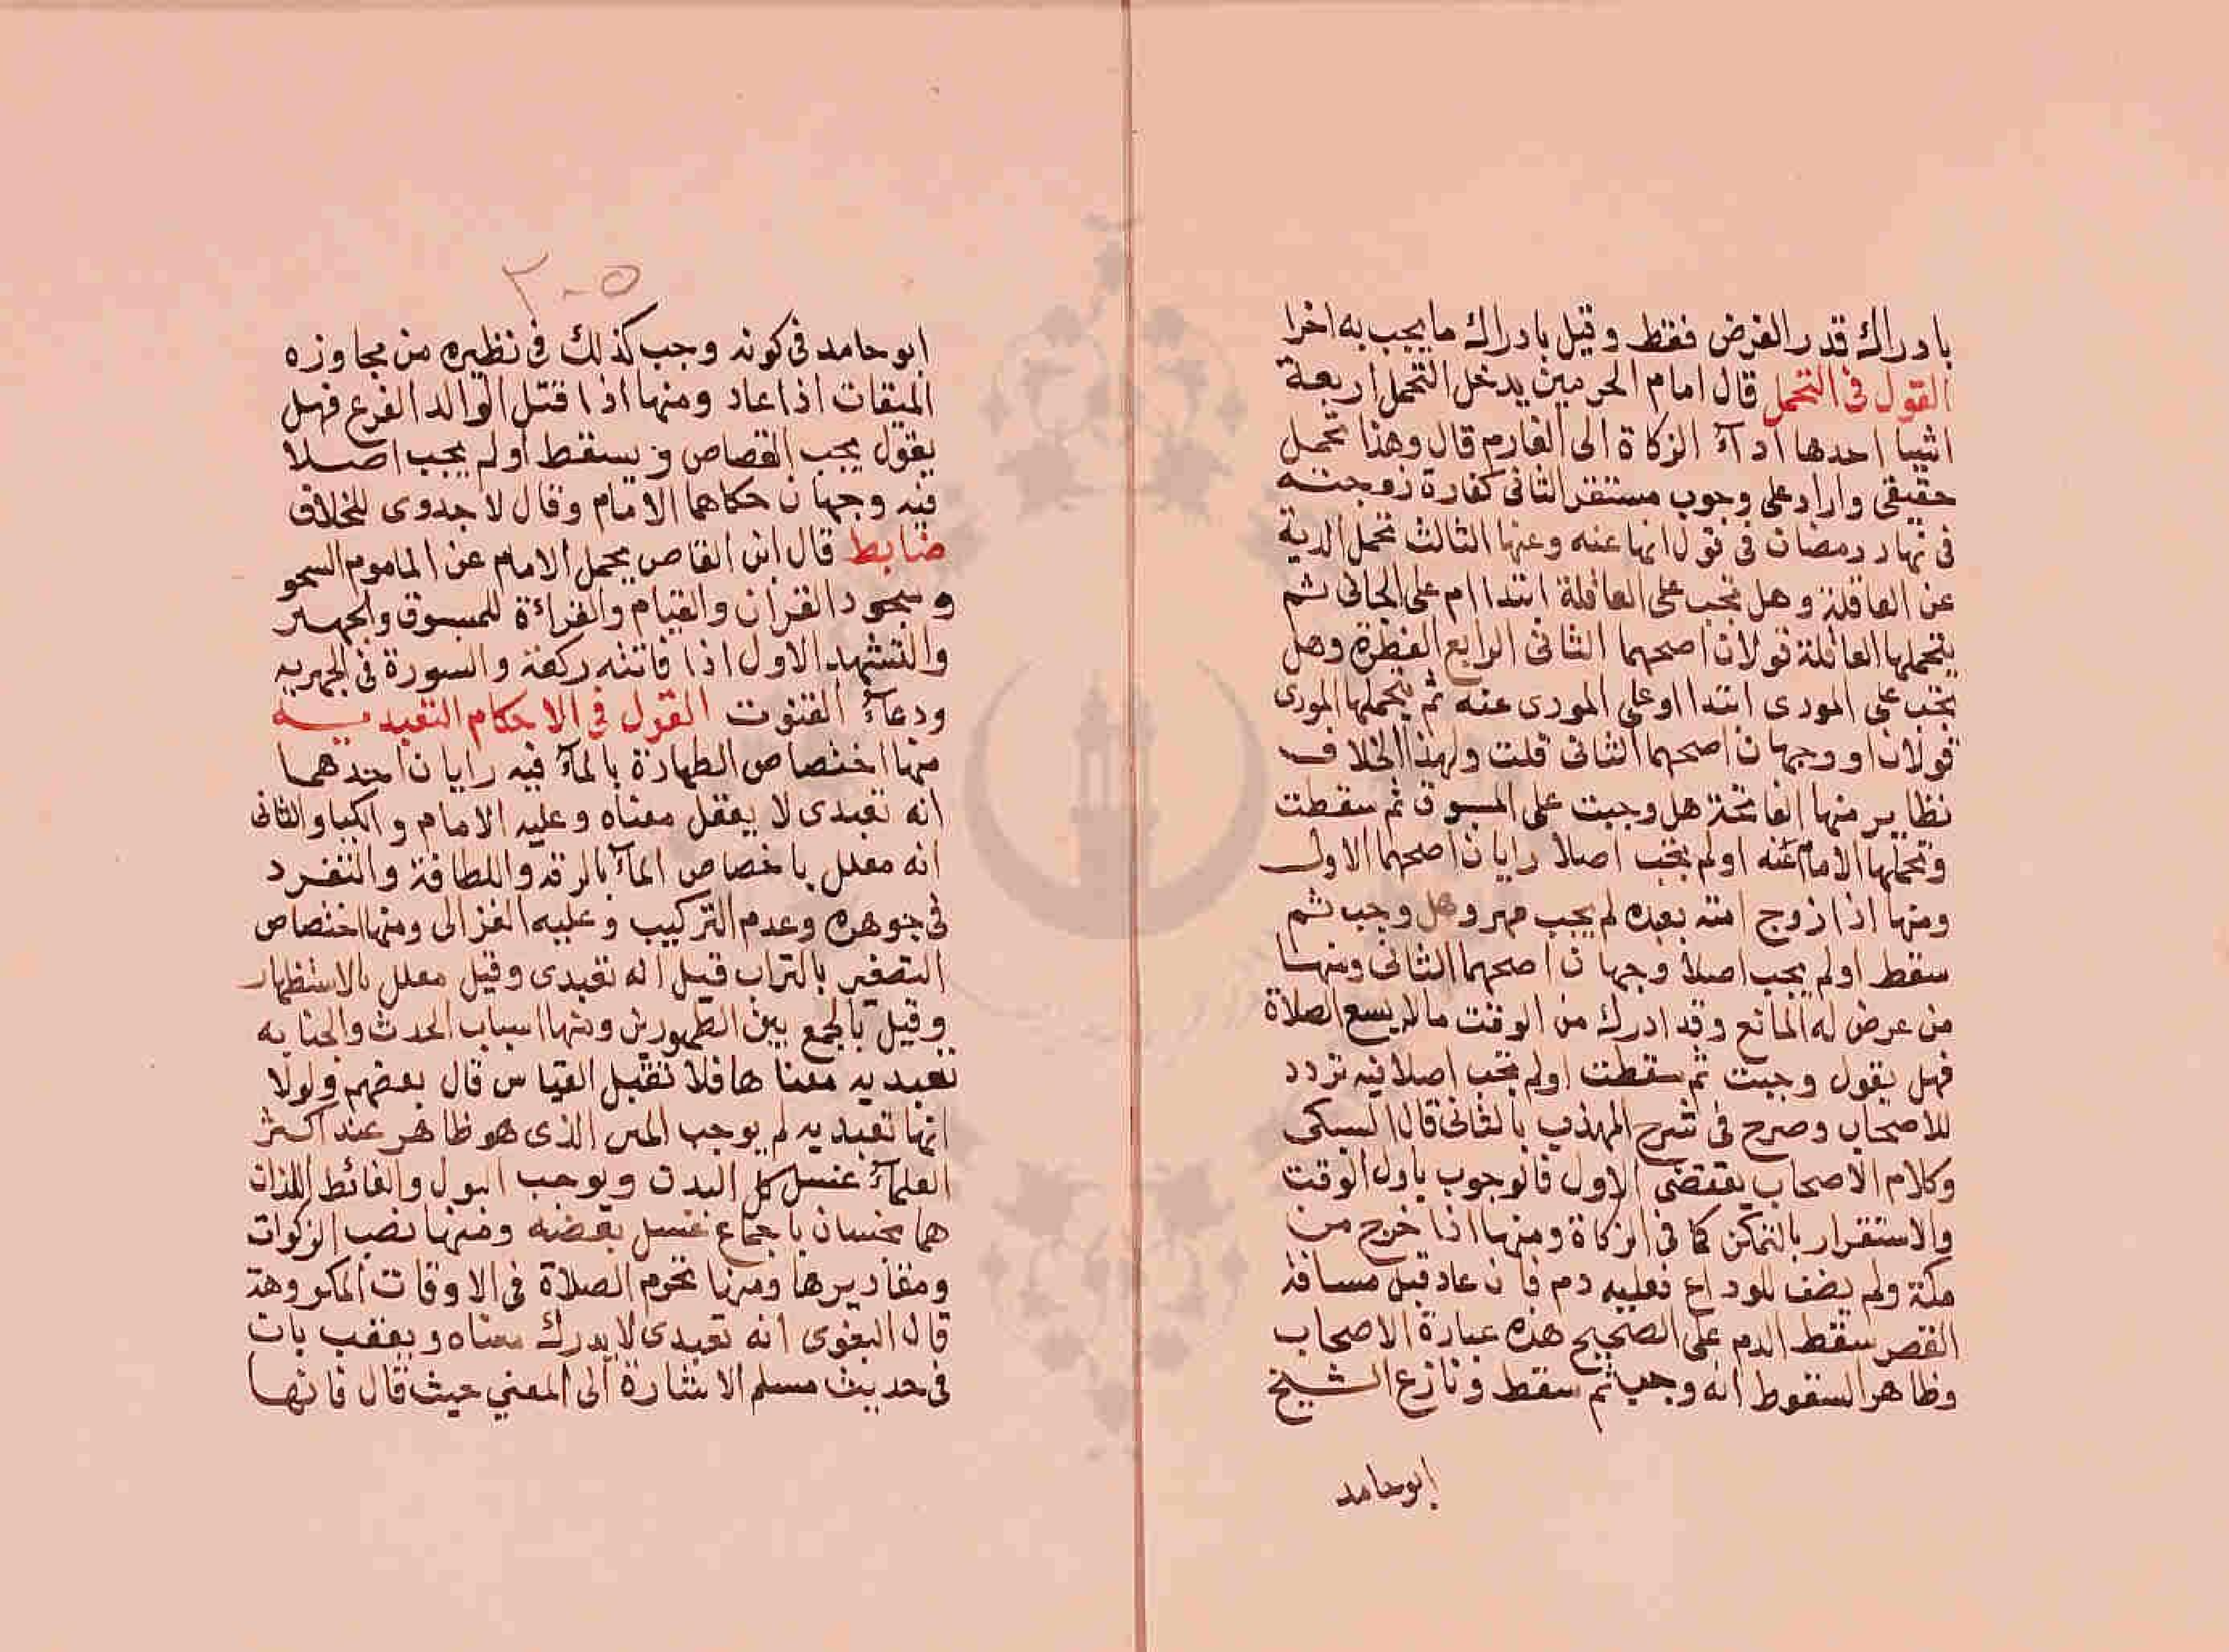 بادراك قدر الفرض فقط وقيل بادراك ما يجب به اخرا
القول في التحمل قال امام الحرمين يدخل التحمل اربعة
اشيا احدها ادآء الزكاة الى الغارم قال وهذا تحمل
حقيقي وارا دعلى وجوب مستقر الثاني كفارة زوجته
في نهار رمضان في قول انها عنه وعنها الثالث تحمل الدية
عن العاقلة وهل تجب على العاقلة ابتدا ام على الجاني ثم
يتحملها العاقلة قولان اصحهما الثاني الرابع الفطرة وهل
تجب على المودى ابتدا او على المودى عنه ثم يتحملها المودى
قولان او وجهان اصحهما الثاني قلت ولهذا الخلاف
نظاير منها الفاتحة هل وجبت على المسبوق ثم سقطت
وتحملها الامام عنه اولم تجب اصلا رايان اصحهما الاول
ومنها اذا زوج امته بعبده لم يجب مهر وهل وجب ثم
سقط اولم يجب اصلا وجهان اصحهما الثاني ومنها
من عرض له المانع وقد ادرك من الوقت مالم يسع الصلاة
فهل يقول وجبت ثم سقطت اولم تجب اصلا فيه تردد
للاصحاب وصرح في شرح المهذب بالثاني قال السبكى
وكلام الاصحاب يقتضى الاول فالوجوب باول الوقت
والاستقرار بالتمكن كما في الزكاة ومنها اذا خرج من
مكة ولم يضف للوداع فعليه دم فان عاد قبل مسافة
القصر سقط الدم على الصحيح هذه عبارة الاصحاب
وظاهر السقوط انه وجب ثم سقط ونازع الشيخ
ابوحامد
٢٠٥
ابوحامد في كونه وجب كذلك في نظيره من مجاوزه
الميقات اذا عاد ومنها اذا قتل الوالد الفرع فهل
يقول يجب القصاص ويسقط اولم يجب اصلا
فيه وجهان حكاهما الامام وقال لا جدوى للخلاف
ضابط قال ابن القاص يحمل الامام عن الماموم السهو
وسجود القران والقيام والقراءة للمسبوق والجهر
والتشهد الاول اذا فاتته ركعة والسورة في الجهريه
ودعآء القنوت القول في الاحكام التعبديه
منها اختصاص الطهارة بالمآء فيه رايان احدهما
انه تعبدى لا يعقل معناه وعليه الامام والكيا والثاني
انه معلل باختصاص المآء بالرقة واللطافة والتفرد
في جوهره وعدم التركيب وعليه الغزالى ومنها اختصاص
التصفير بالتراب قيل انه تعبدى وقيل معلل بالاستظهار
وقيل بالجمع بين الطهورين ومنها اسباب الحدث والجنابه
تعبديه معناها فلا تقبل القياس قال بعضهم ولولا
انها تعبديه لم يوجب المنى الذى هو طاهر عند اكثر
العلمآء غسل كل البدن ويوجب البول والغائط اللذان
هما نجسان باجماع غسل بعضه ومنها نصب الزكوات
ومقاديرها ومنها تحريم الصلاة في الاوقات المكروهة
قال البغوى انه تعبدى لا يدرك معناه ويعقب بان
في حديث مسلم الاشارة الى المعني حيث قال فانها